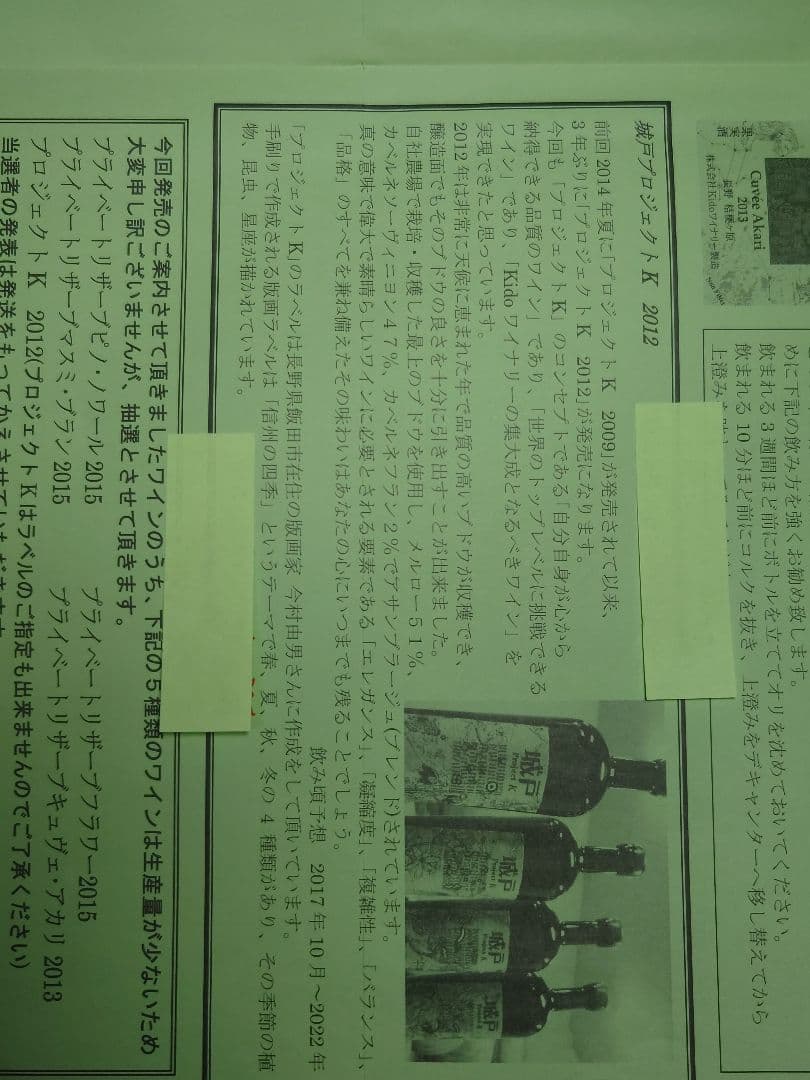 果実酒
Cuvée Akari
2013
長野 桔梗ヶ原
株式会社Kidoワイナリー製造
めに下記の飲み方を強くお勧め致します。
飲まれる 3 週間ほど前にボトルを立ててオリを沈めておいてください。
飲まれる 10 分ほど前にコルクを抜き、上澄みをデキャンターへ移し替えてから
城戸プロジェクトK 2012
前回 2014 年夏に「プロジェクト K 2009」が発売されて以来、
3 年ぶりに「プロジェクト K 2012」が発売になります。
今回も「プロジェクト K」のコンセプトである「自分自身が心から
納得できる品質のワイン」であり、「世界のトップレベルに挑戦できる
ワイン」であり、「Kido ワイナリーの集大成となるべきワイン」を
実現できたと思っています。
2012 年は非常に天候に恵まれた年で品質の高いブドウが収穫でき、
醸造面でもそのブドウの良さを十分に引き出すことが出来ました。
自社農場で栽培・収穫した最上のブドウを使用し、メルロー５１％、
カベルネソーヴィニヨン４７％、カベルネフラン２％でアサンブラージュ(ブレンド)されています。
真の意味で偉大で素晴らしいワインに必要とされる要素である「エレガンス」、「凝縮度」、「複雑性」、「バランス」、
「品格」のすべてを兼ね備えたその味わいはあなたの心にいつまでも残ることでしょう。
飲み頃予想 2017 年 10 月～2022 年
「プロジェクト K」のラベルは長野県飯田市在住の版画家 今村由男さんに作成をして頂いています。
手刷りで作成される版画ラベルは「信州の四季」というテーマで春、夏、秋、冬の 4 種類があり、その季節の植
物、昆虫、星座が描かれています。
城戸
Project K
城戸
Project K
城戸
Project K
城戸
Project K
今回発売のご案内させて頂きましたワインのうち、下記の５種類のワインは生産量が少ないため
大変申し訳ございませんが、抽選とさせて頂きます。
プライベートリザーブピノ・ノワール 2015 プライベートリザーブラワー2015
プライベートリザーブマスミ・ブラン 2015 プライベートリザーブキュヴェ・アカリ 2013
プロジェクト K 2012(プロジェクト K はラベルのご指定も出来ませんのでご了承ください)
当選者の発表は発送をもってかえさせていただきます